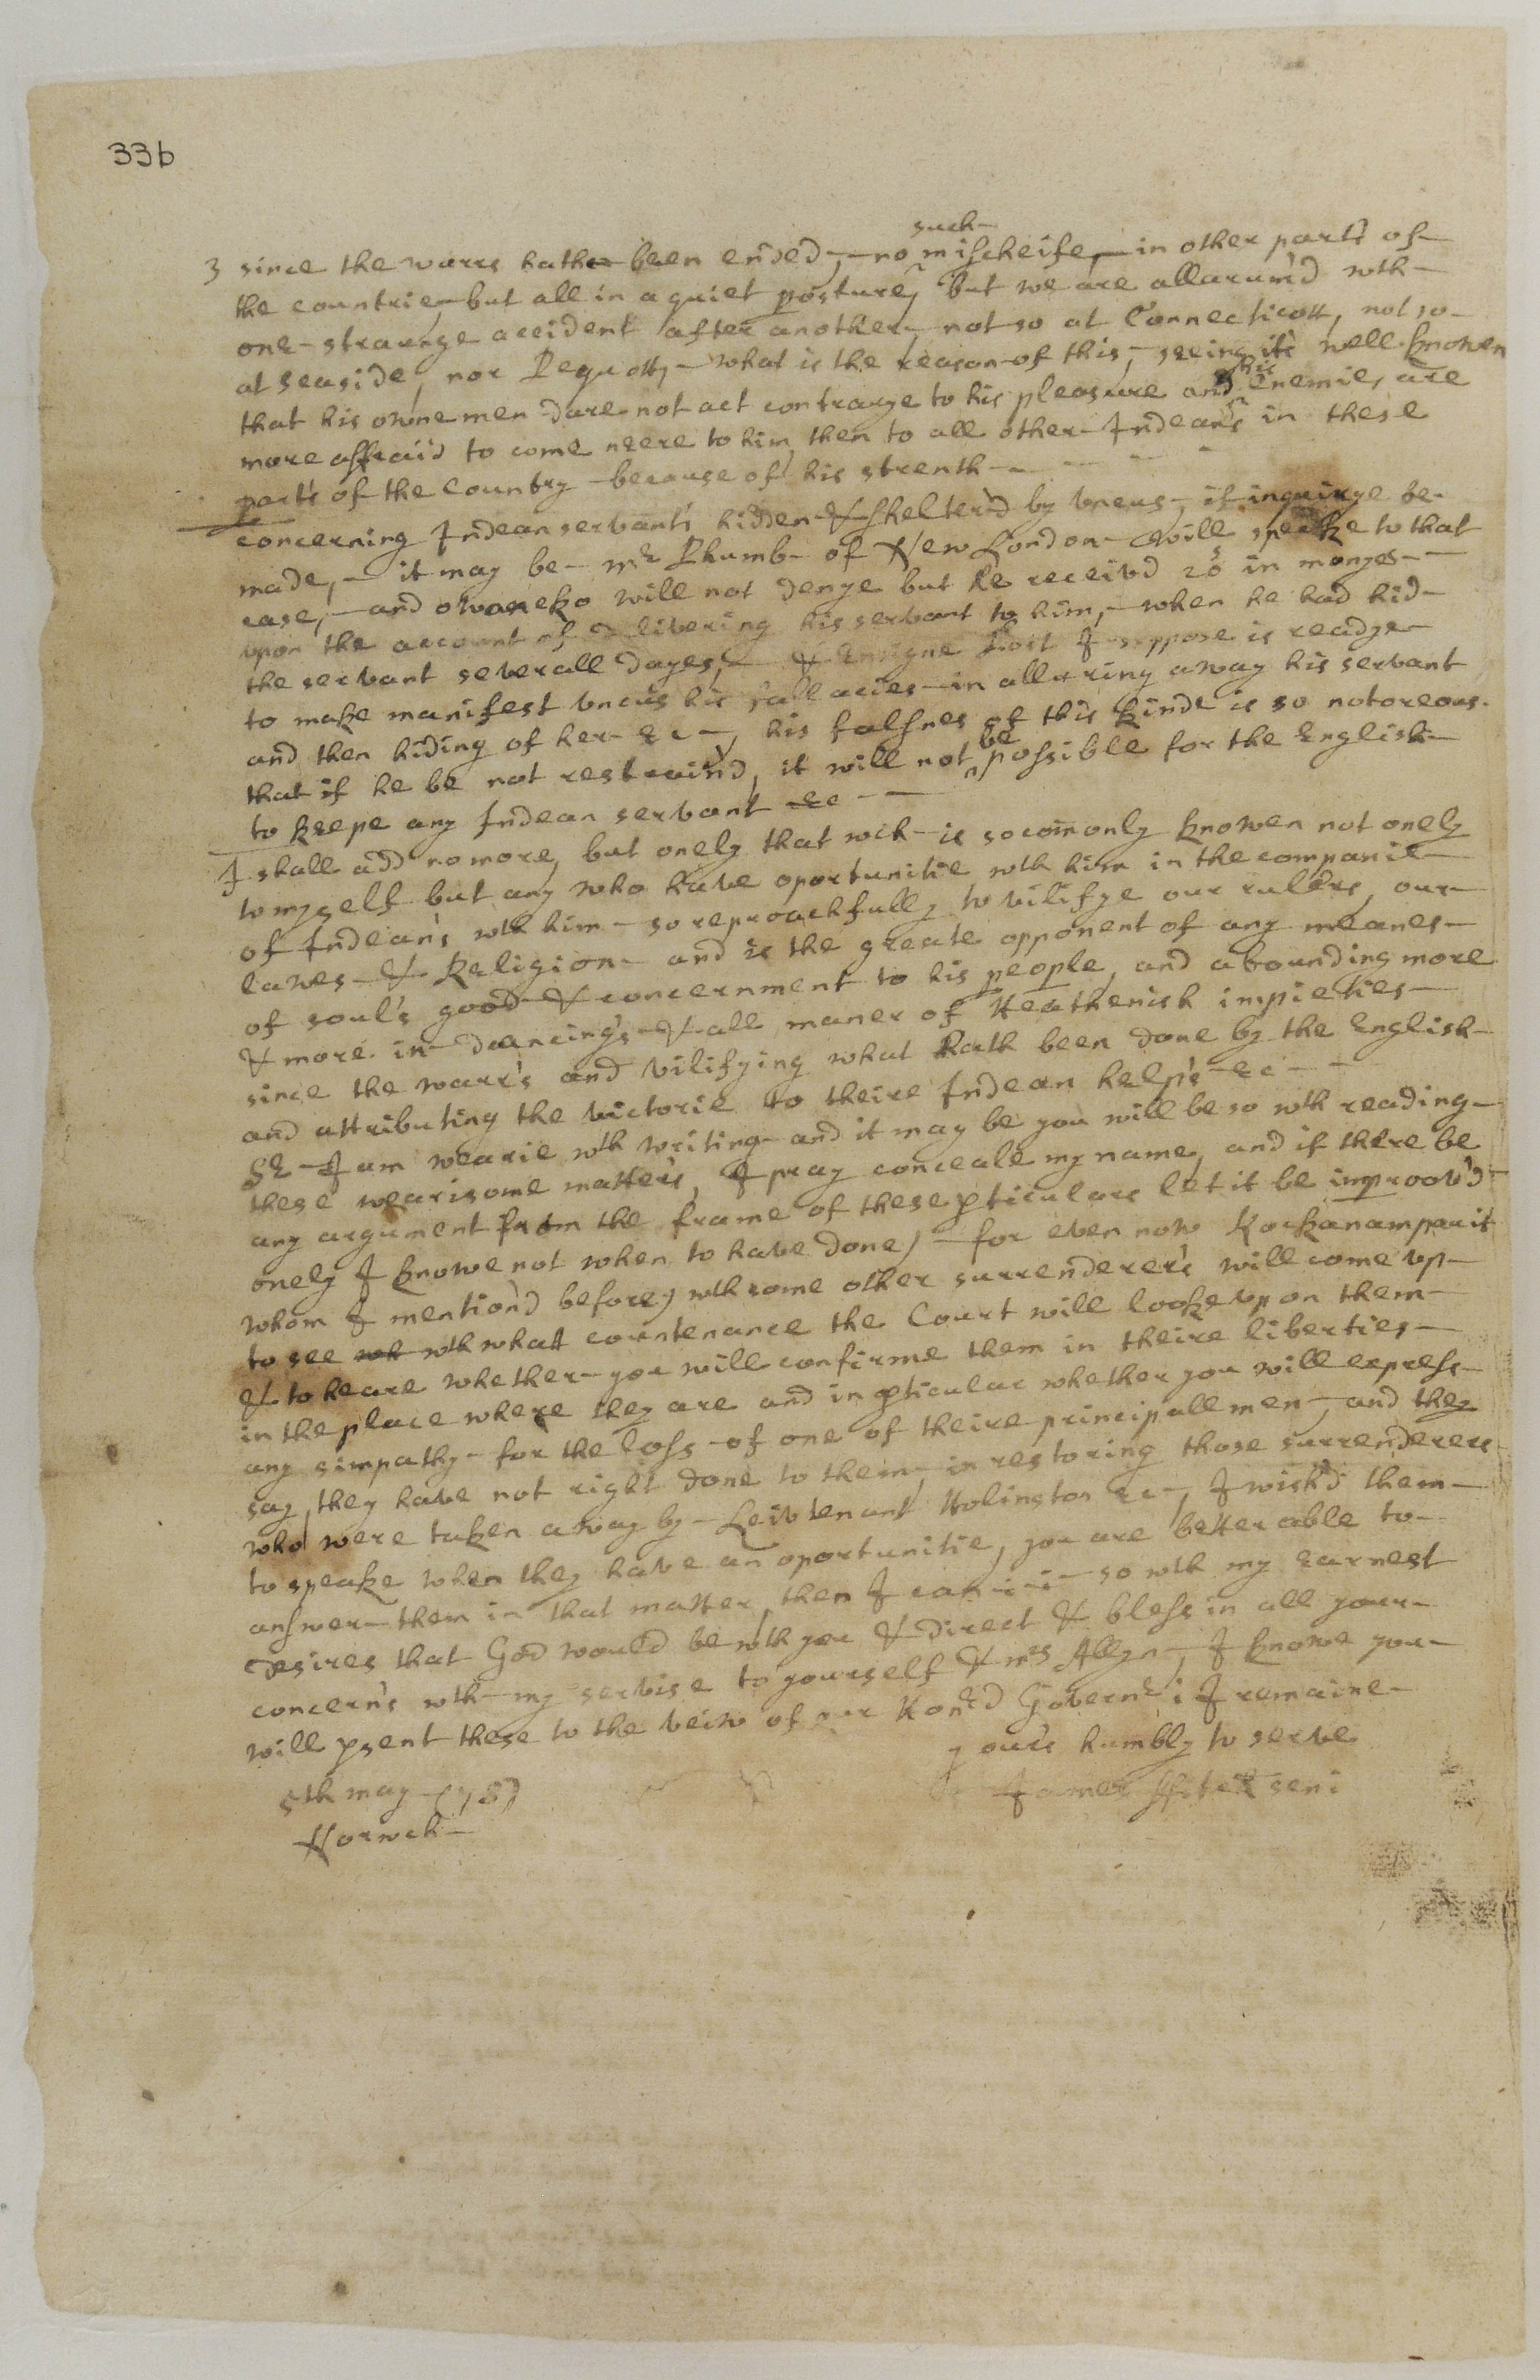 33b
such
3 since the warrs hath been ended, - no mischeife, - in other part's of
the countrie, but all in a quiet posture, But we are allarum'd wth
one straunge accident after another, not so at Connecticott, not so
at seaside, nor Pequott, - what is the reason of this, - seeing it's well knowen
that his owne men dare not act contrarye to his pleasure and his Enemies are
more affraid to come neere to him, then to all other Indean's in these
part's of the Country because of his strenth - - - - -
concerning Indean servant's hidden & shelter'd by Uncus, if inquirye be
made, - it may be - mr Plumb of New London Will speake to that
case, - and owaneko will not denye but he receivd 20s in monyes -
upon the account of delivering his servant to him, - when he had hid
the servant severall dayes, & Ensigne I suppose is readye
to make manifest uncus his fallacies in alluring away his servant
and then hiding of her - &c -, his falsnes of this kinde is so notoreous
that if he be not restrain'd, it will not be possible for the English
to keepe any Indean servant &c - -
I shall add no more, but onely that wch - is so comonly knowen not onely
to myself but any who have oportunitie wth him in the companie
of Indean's wth him - so reproachfully to vilifye our rulers, our
lawes - & Religion - and is the greate opponent of any meanes -
of soul's good & concernment to his people, and abounding more
& more in - dancing's & all maner of Heathenish impieties -
since the warr's and vilifying what hath been done by the English -
and attributing the victorie to theire Indean help's - &c - -
Sr - I am wearie wth writing - and it may be you will be so wth reading -
these wearisome matter's, I pray conceale my name, and if there be
any argument from the frame of these pticulars let it be improov'd
onely I knowe not when to have done, - for even now Kockanamparit
whom I mention'd before, wth some other surrenderer's will come up -
to see wh wth what countenance the Court will looke upon them -
& to heare whether - you will confirme them in theire liberties -
in the place where they are and in pticular whether you will express -
any simpathy - for the loss - of one of theire principall men, and they
say, they have not right done to them, in restoring those surrenderers
who were taken away by - Leivtenant Holington &c -, I wish'd them -
to speake when they have an oportunitie, you are better able to -
answer - them in that matter, then I can - - so wth my earnest
desires that God would be wth you & direct & bless in all your -
concern's wth - my servise to yourself & mrs Allyn, I knowe you -
will psent these to the veiw of our Honrd Govern: I remaine -
your's humbly to serve
James Fitch seni
5th may - (78)
Norwch -